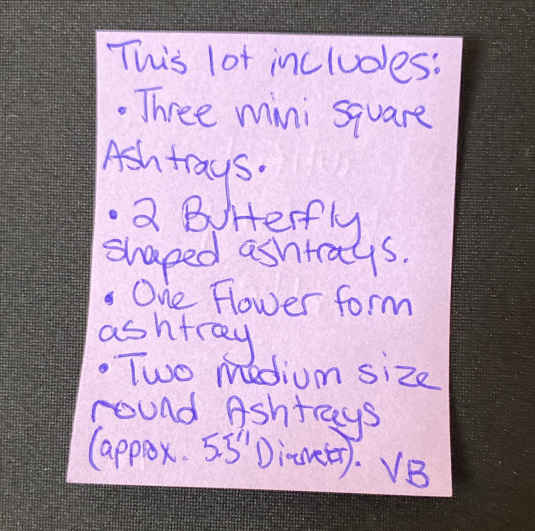 This lot includes:
• Three mini square
Ashtrays.
• 2 Butterfly
shaped ashtrays.
• One Flower form
ashtray
• Two medium size
round Ashtrays
(approx. 5.5" Diameter). VB